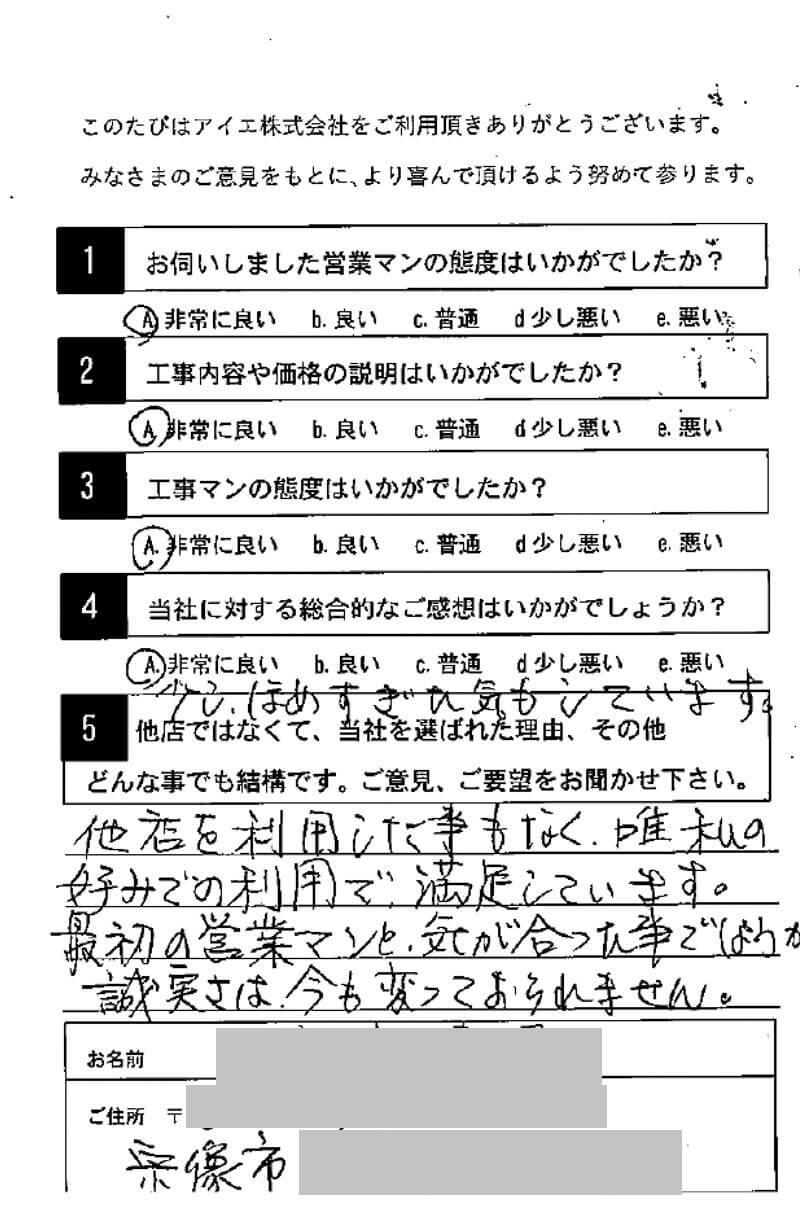 このたびはアイエ株式会社をご利用頂きありがとうございます。
みなさまのご意見をもとに、より喜んで頂けるよう努めて参ります。
1 お伺いしました営業マンの態度はいかがでしたか?
A 非常に良い b. 良い c. 普通 d 少し悪い e. 悪い
2 工事内容や価格の説明はいかがでしたか?
A. 非常に良い b. 良い c. 普通 d 少し悪い e. 悪い
3 工事マンの態度はいかがでしたか?
A. 非常に良い b. 良い c. 普通 d 少し悪い e. 悪い
4 当社に対する総合的なご感想はいかがでしょうか?
A. 非常に良い b. 良い c. 普通 d 少し悪い e. 悪い
少し、ほめすぎた気もしています。
5 他店ではなくて、当社を選ばれた理由、その他
どんな事でも結構です。ご意見、ご要望をお聞かせ下さい。
他店を利用した事もなく、唯私の
好みでの利用で、満足しています。
最初の営業マンと、気が合った事でしょうか
誠実さは、今も変っておられません。
お名前
ご住所 〒
宗像市